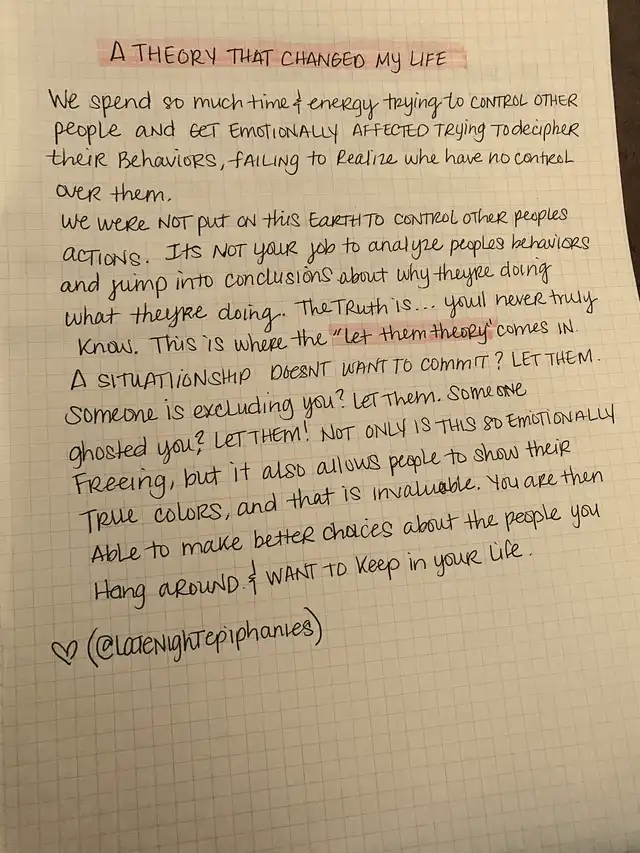 A THEORY THAT CHANGED MY LIFE
We spend so much time & energy trying to CONTROL OTHER
people AND GET EMOTIONALLY AFFECTED TRying TO decipher
their BEHAVIORS, fAILING to Realize whe have no control
over them.
WE WERE NOT put ON this EARTH TO CONTROL OTHER peoples
ACTIONS. ITS NOT YOUR job to analyze peoples behaviors
and jump into conclusions about why theyre doing
what theyre doing. The TRUTH is... youll never truly
KNOW. This is where the "let them theory" comes IN.
A SITUATIIONSHIP DOESNT WANT TO COMMIT? LET THEM.
Someone is excluding you? LET Them. Someone
ghosted you? LET THEM! NOT ONLY IS THIS SO EMOTIONALLY
FREEing, but it also allows people to show their
TRUE COLORS, and that is invaluable. YOU ARE then
Able to make better choices about the people you
Hang AROUND & WANT TO Keep in your Life.
♡ (@LATENIGHTepiphanies)